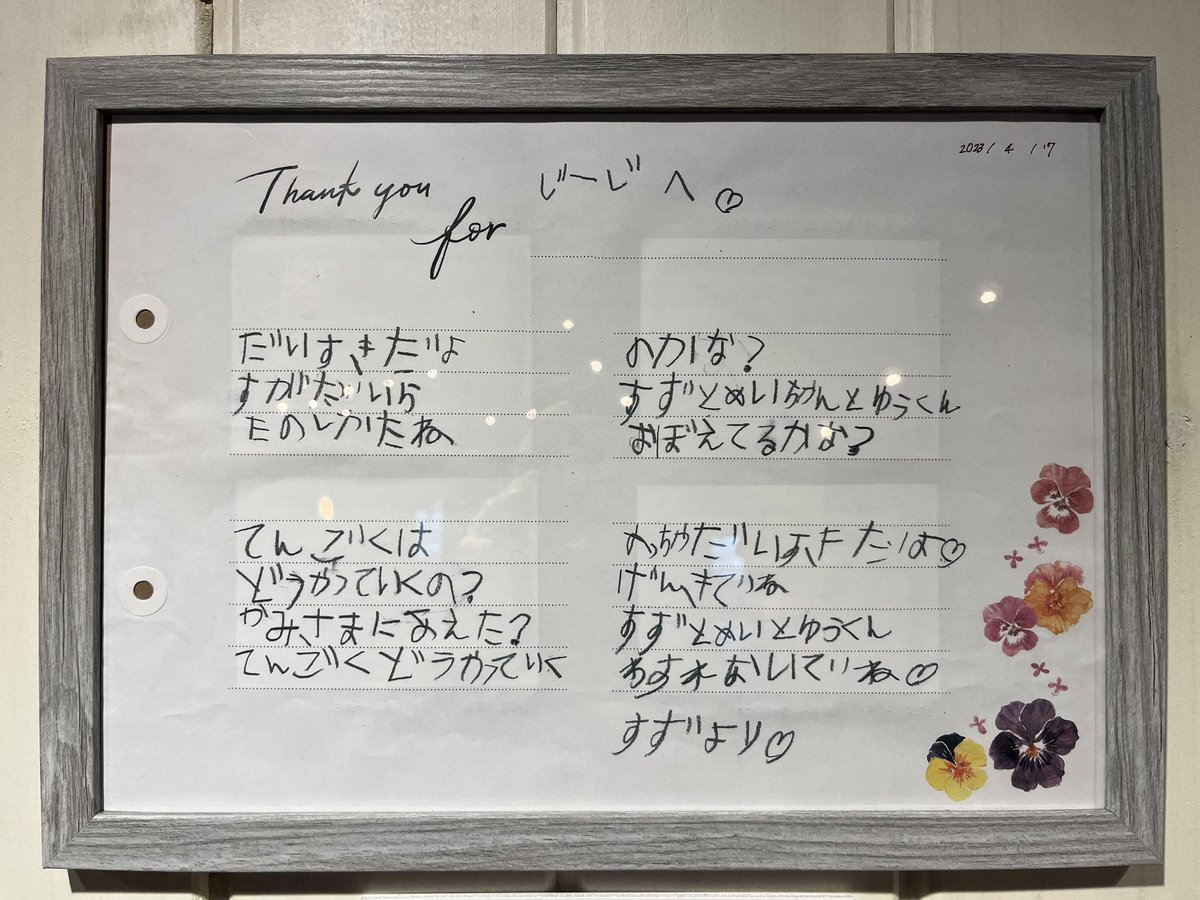 2023 / 4 / 17
Thank you
for
じーじへ♡
だいすきだよ
すがだいら
たのしかたね
てんごくは
どうかっていくの?
かみさまにあえた?
てんごくどうかっていく
のかしな?
すずとめいちゃんとゆうくん
おぼえてるかな?
めっちゃだいすきだよ♡
げんきでいね
すずとめいとゆうくん
わすれないしていね♡
すずより♡